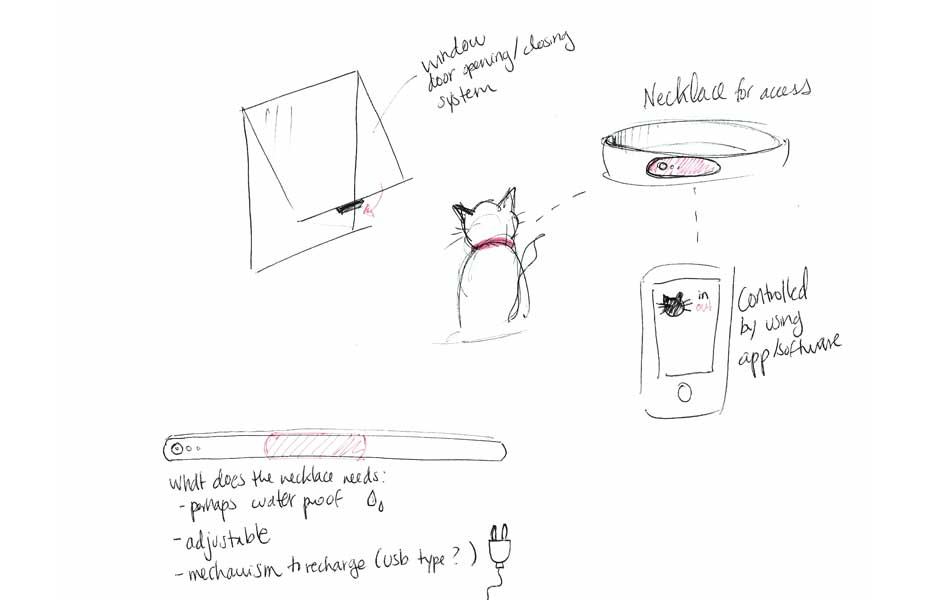 window
door opening/closing
system
Necklace for access
in
out
Controlled
by using
app/software
What does the necklace needs:
- perhaps water proof
- adjustable
- mechanism to recharge (usb type?)